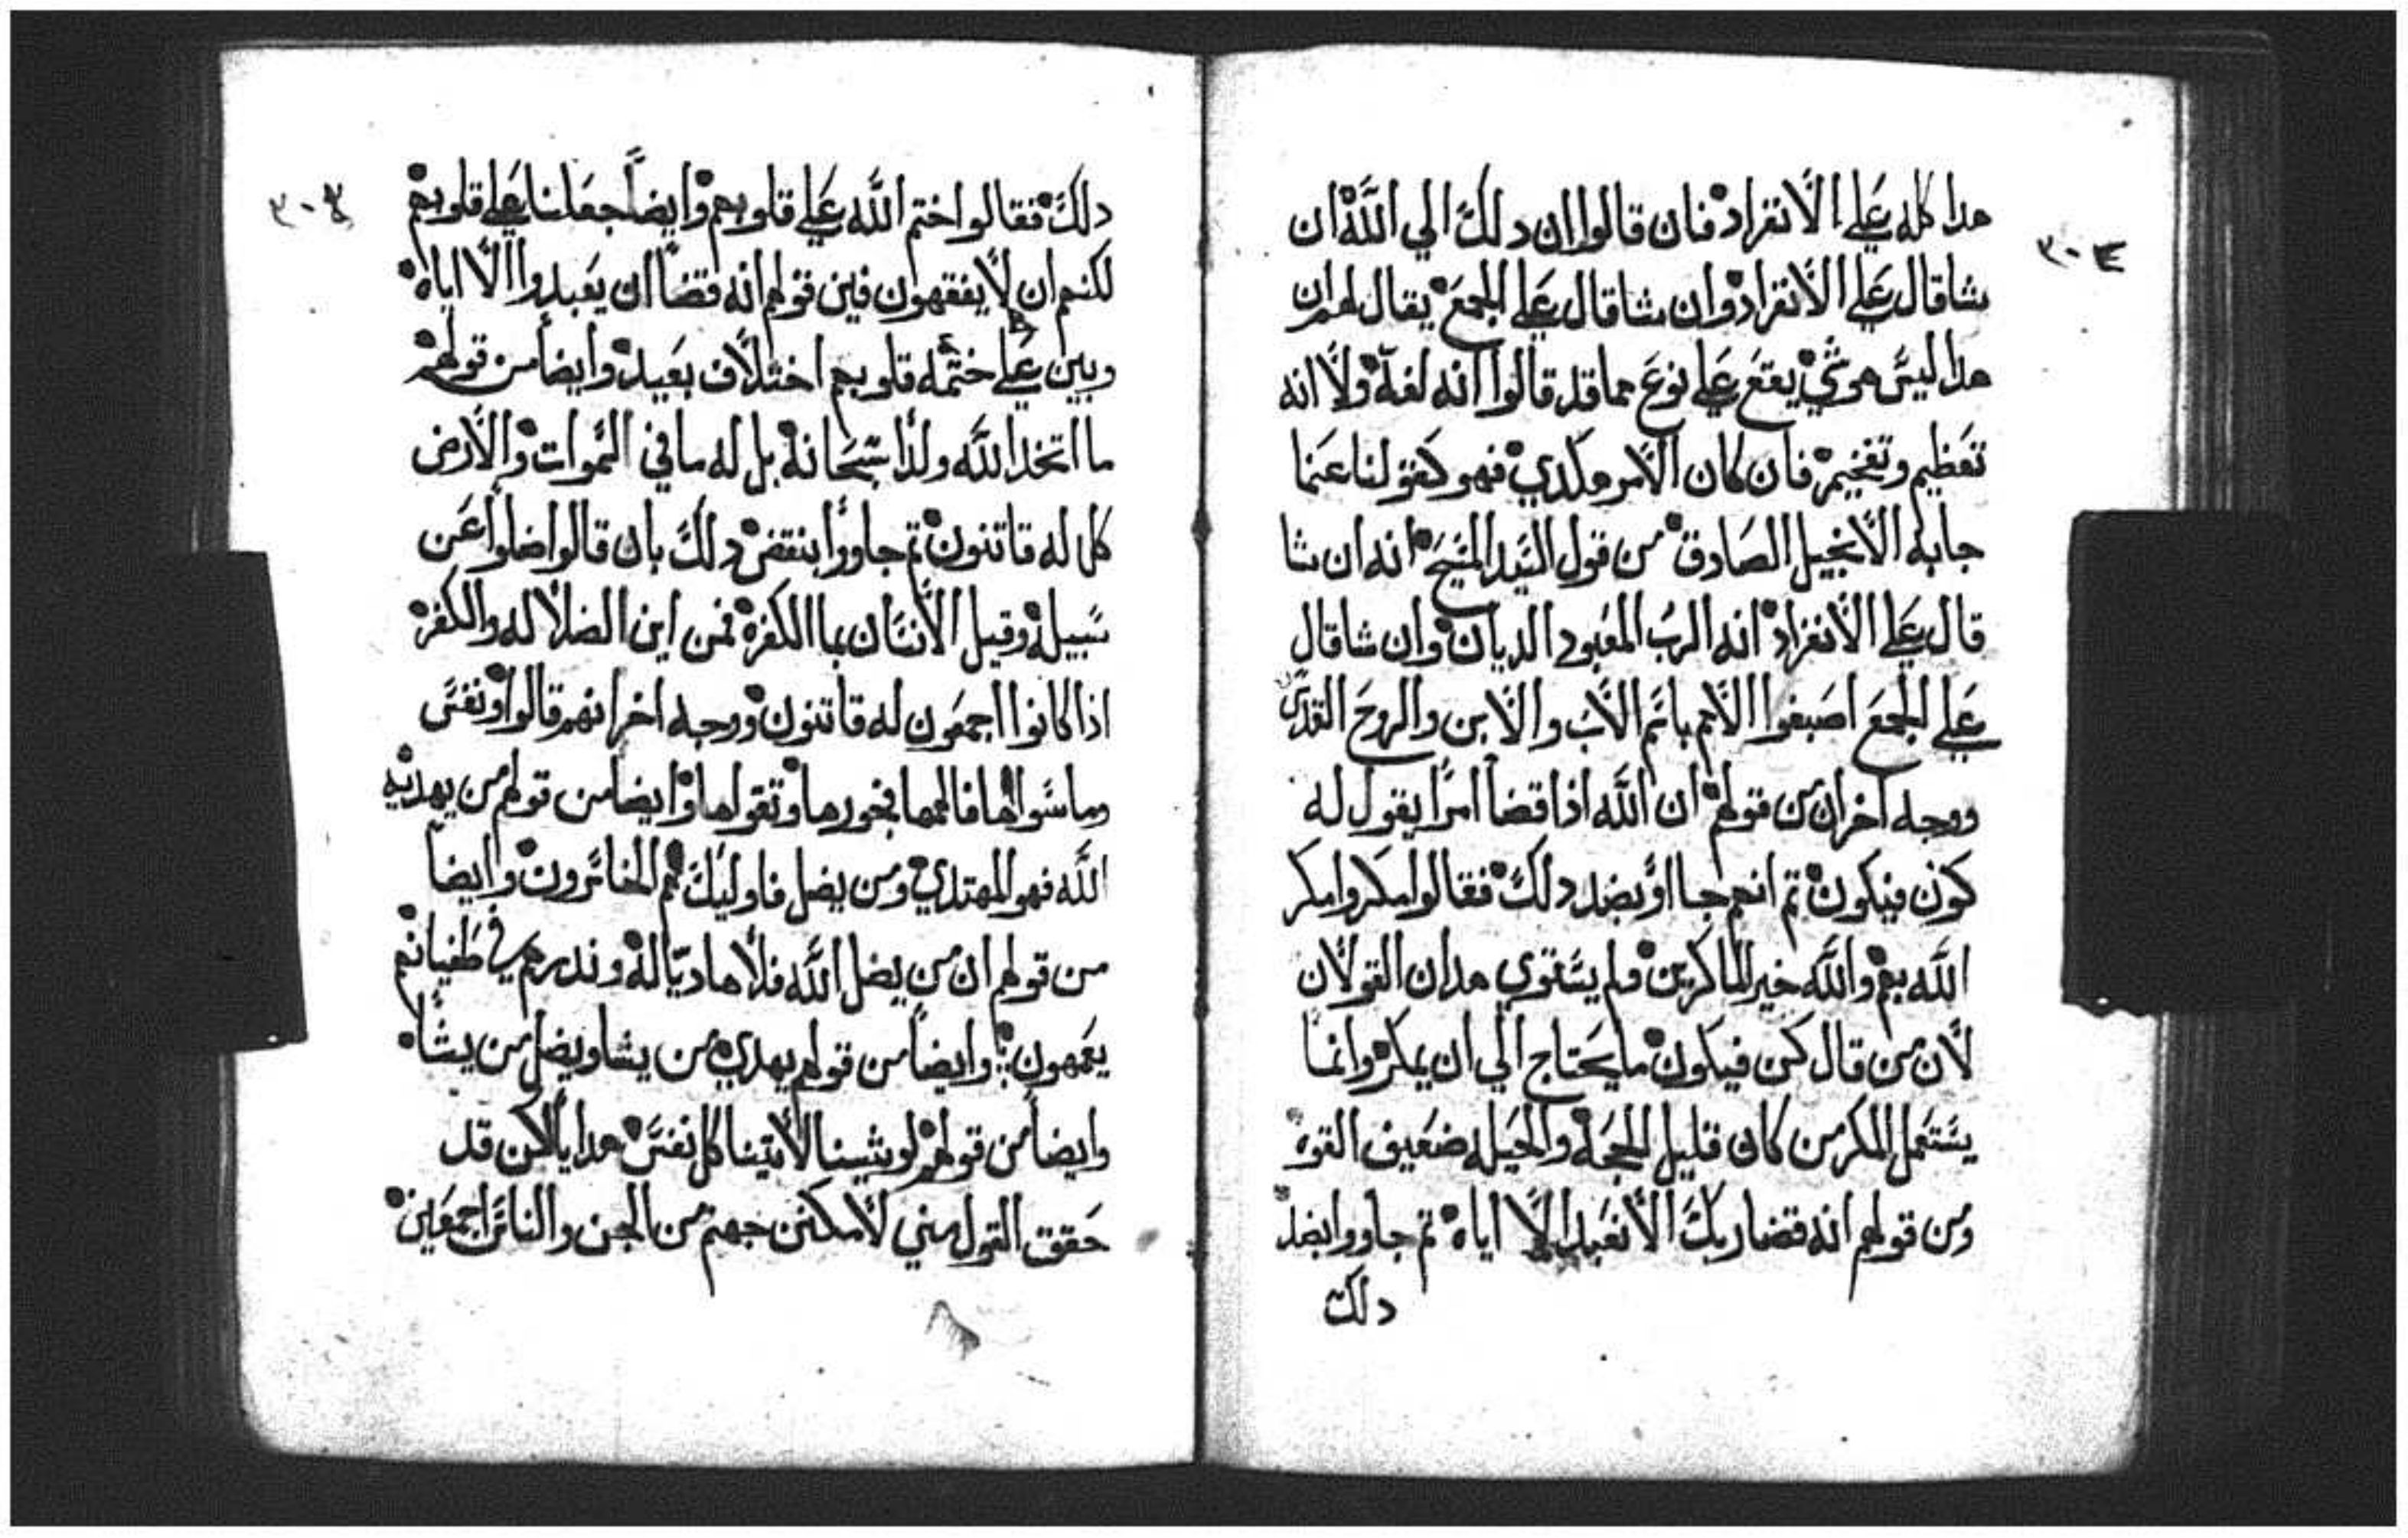 ٣٠٤
هدا كله علي الانفراد فان قالوا ان دلك الي الله ان
شا قال علي الانفراد وان شا قال علي الجمع يقال لهم ان
هدا ليس هو شي يقع علي نوع مما قد قالوا انه لغة ولا انه
تعظيم وتفخيم فان كان الامر هكدي فهو كقولنا عنما
جا به الانجيل الصادق من قول السيد المسيح انه ان شا
قال علي الانفراد انه الرب المعبود الديان وان شا قال
علي الجمع اصبغوا الامم باسم الاب والابن والروح القدس
ووجه اخر ان من قولهم ان الله اذا قضا امرا يقول له
كون فيكون تم انهم جااو بضد دلك فقالوا مكروا مكر
الله بهم والله خير الماكرين ولم يستوي هدان القولان
لان من قال كن فيكون ما يحتاج الي ان يمكر وانما
يستعمل المكر من كان قليل الحجة والحيلة ضعيف القوة
ومن قولهم انه قضا ربك الا نعبد الا اياه تم جاووا بضد
دلك
٣٠٤
دلك فقالوا ختم الله علي قلوبهم وايضا جعلنا علي قلوبهم
لكنهم ان لا يفقهون فين قولهم انه قضا ان يعبدوا الا اياه
وبين علي ختمه قلوبهم اختلاف بعيد وايضا من قولهم
ما اتخد الله ولدا سبحانه بل له ما في السموات والارض
كل له قانتون تم جاووا بنقض دلك بان قالوا اضلوا عن
سبيله وقيل الانسان بما الكفره فمن اين الضلالة والكفر
اذا كانوا اجمعون له قانتون ووجه اخر انهم قالوا ونفس
وما سواها فالهمها فجورها وتقواها وايضا من قولهم من يهديه
الله فهو المهتدي ومن يضل فاوليك هم الخاسرون وايضا
من قولهم ان من يضل الله فلا هاديا له وندرهم في طغيانهم
يعمهون وايضا من قولهم يهدي من يشا ويضل من يشا
وايضا من قولهم لو شينا لاتينا كل نفس هدايا لاكن قد
حقق القول مني لامكنن جهنم من الجن والناس اجمعين